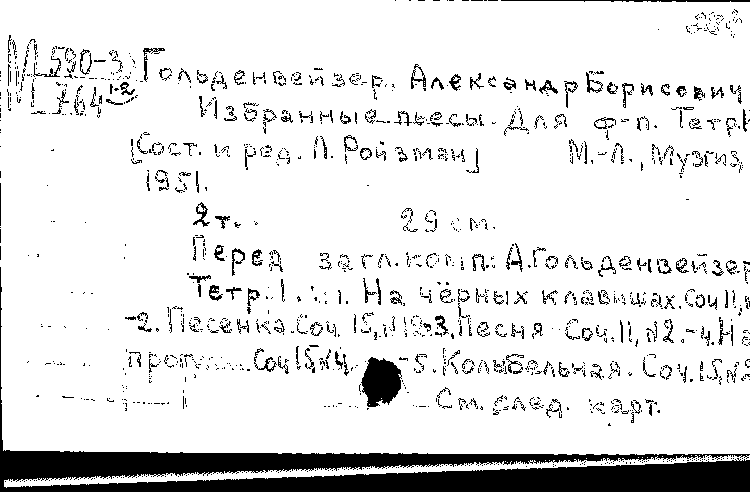 М 590-3 Гольденвейзер, Александр Борисович
764 1-2 Избранные пьесы. Для ф-п. Тетр.
[Сост. и ред. Л. Ройзман] М.-Л., Музгиз,
1951.
2 т. 29 см.
Перед загл. комп.: А. Гольденвейзер
Тетр. 1. : 1. На чёрных клавишах. Соч 11,
-2. Песенка. Соч. 15, N 12-3. Песня Соч. 11, N2.-4. На
прогул Соч 15, N4 -5. Колыбельная. Соч. 15, N2
См. след. карт.